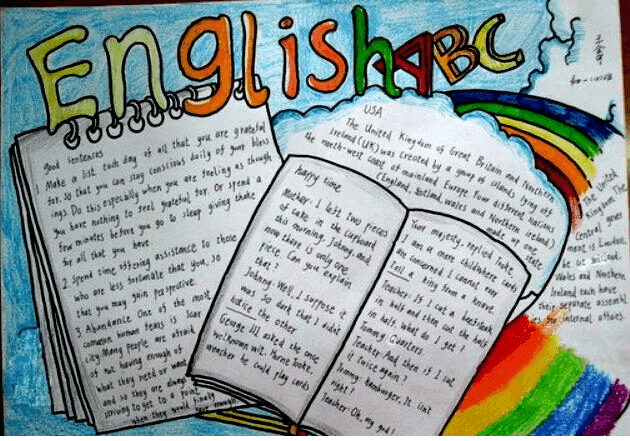 English ABC
good sentences
1. Make a list each day of all that you are grateful
for. so that you can stay conscious daily of your bless
ings. Do this especially when you are feeling as though
you have nothing to feel grateful for. Or spend a
few minutes before you go to sleep giving thake
for all that you have.
2. Spend time offering assistance to those
who are less fortunate that you, so
that you may gain perspective.
3. Abundance One of the most
common human fears is scar
city. Many people are afraid
of not having enough of
what they need or want
and so they are always
striving to get to a point
when they would finally
have enough
happy time
Mother: I left two pieces
of cake in the cupboard
this morning. Johnny, and
now there is only one
piece. Can you explain
that?
Johnny: Well, I suppose it
was so dark that I didn't
notice the other
George III. asked the once
wellknown wit. Horne Tooke,
wheather he could play cards
Your majesty, replied Tooke,
I am a mere childwhere cards
are concerned I cannot even
tell a king from a knave.
Teacher: If I cut a beefsteak
in half and then cut the half
in half. What do I get?
Tommy: Quarters.
Teacher: And then if I cut
it twice again?
Tommy: Hamburger. It isn't
right?
Teacher: Oh, my god!
USA
The United Kingdom of Great Britain and Northern
Ireland (UK) was created by a group of islands lying off
the north-west coast of mainland Europe. Four different Nations
(England, Scotland, Wales and Northern Ireland)
made up one
state
The United
Kingdom. The
central gover
ment is London,
Wales and Northern
Ireland each have
their separate assembl
ies for internal affairs.